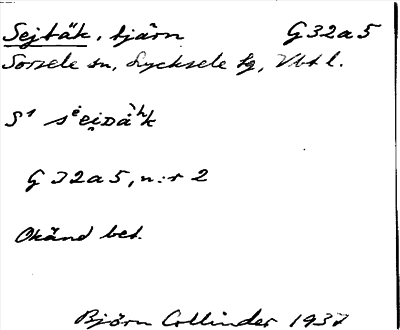 Sejtäk, tjärn G32a5
Sorsele sn, Lycksele lg, Vbt l.
S¹
G 32a5, n:r 2
Okänd bet.
Björn Collinder 1937